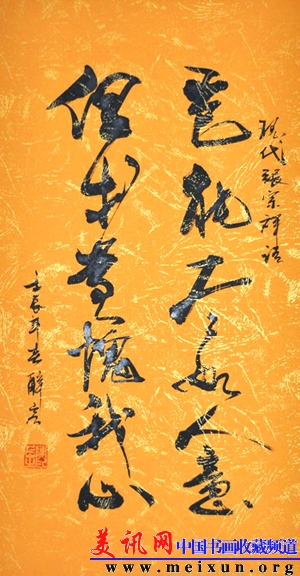 现代張宗祥語
豈能尽如人意
但求無愧我心
壬辰年春醉
美讯网 中国书画收藏频道
www.meixun.org.cn